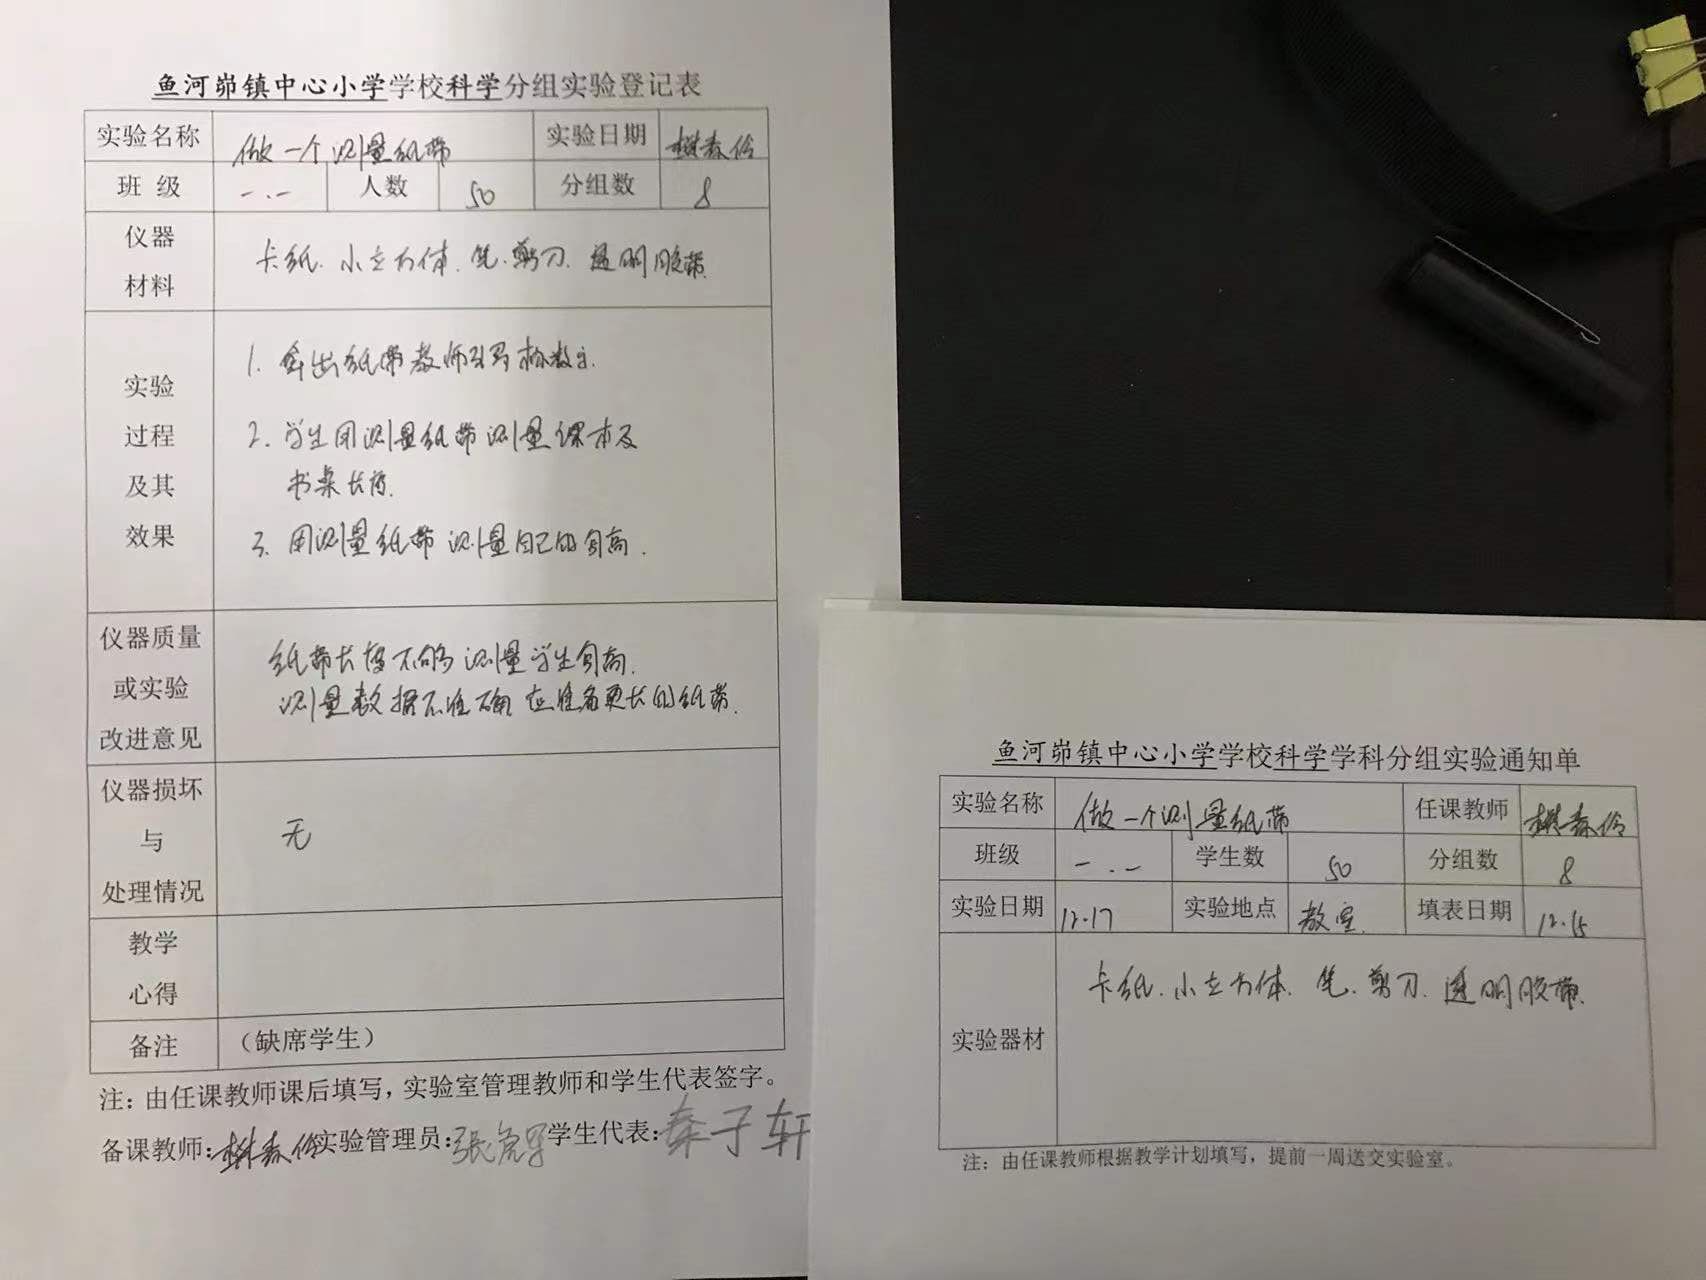 鱼河峁镇中心小学学校科学分组实验登记表
实验名称 做一个测量纸带 实验日期
班 级 一.一 人数 50 分组数 8
仪器
材料
卡纸.小立方体.笔.剪刀.透明胶带.
实验
过程
及其
效果
1. 拿出纸带教师引导标数字.
2. 学生用测量纸带测量课本及
书桌长度.
3. 用测量纸带测量自己的身高.
仪器质量
或实验
改进意见
纸带长度不够测量学生身高.
测量数据不准确 应准备更长的纸带.
仪器损坏
与
处理情况
无
教学
心得
备注 (缺席学生)
注:由任课教师课后填写,实验室管理教师和学生代表签字。
备课教师: 实验管理员: 学生代表:秦子轩
鱼河峁镇中心小学学校科学学科分组实验通知单
实验名称 做一个测量纸带 任课教师
班级 一.一 学生数 50 分组数 8
实验日期 12.17 实验地点 教室. 填表日期 12.15
实验器材
卡纸.小立方体.笔.剪刀.透明胶带.
注:由任课教师根据教学计划填写,提前一周送交实验室。